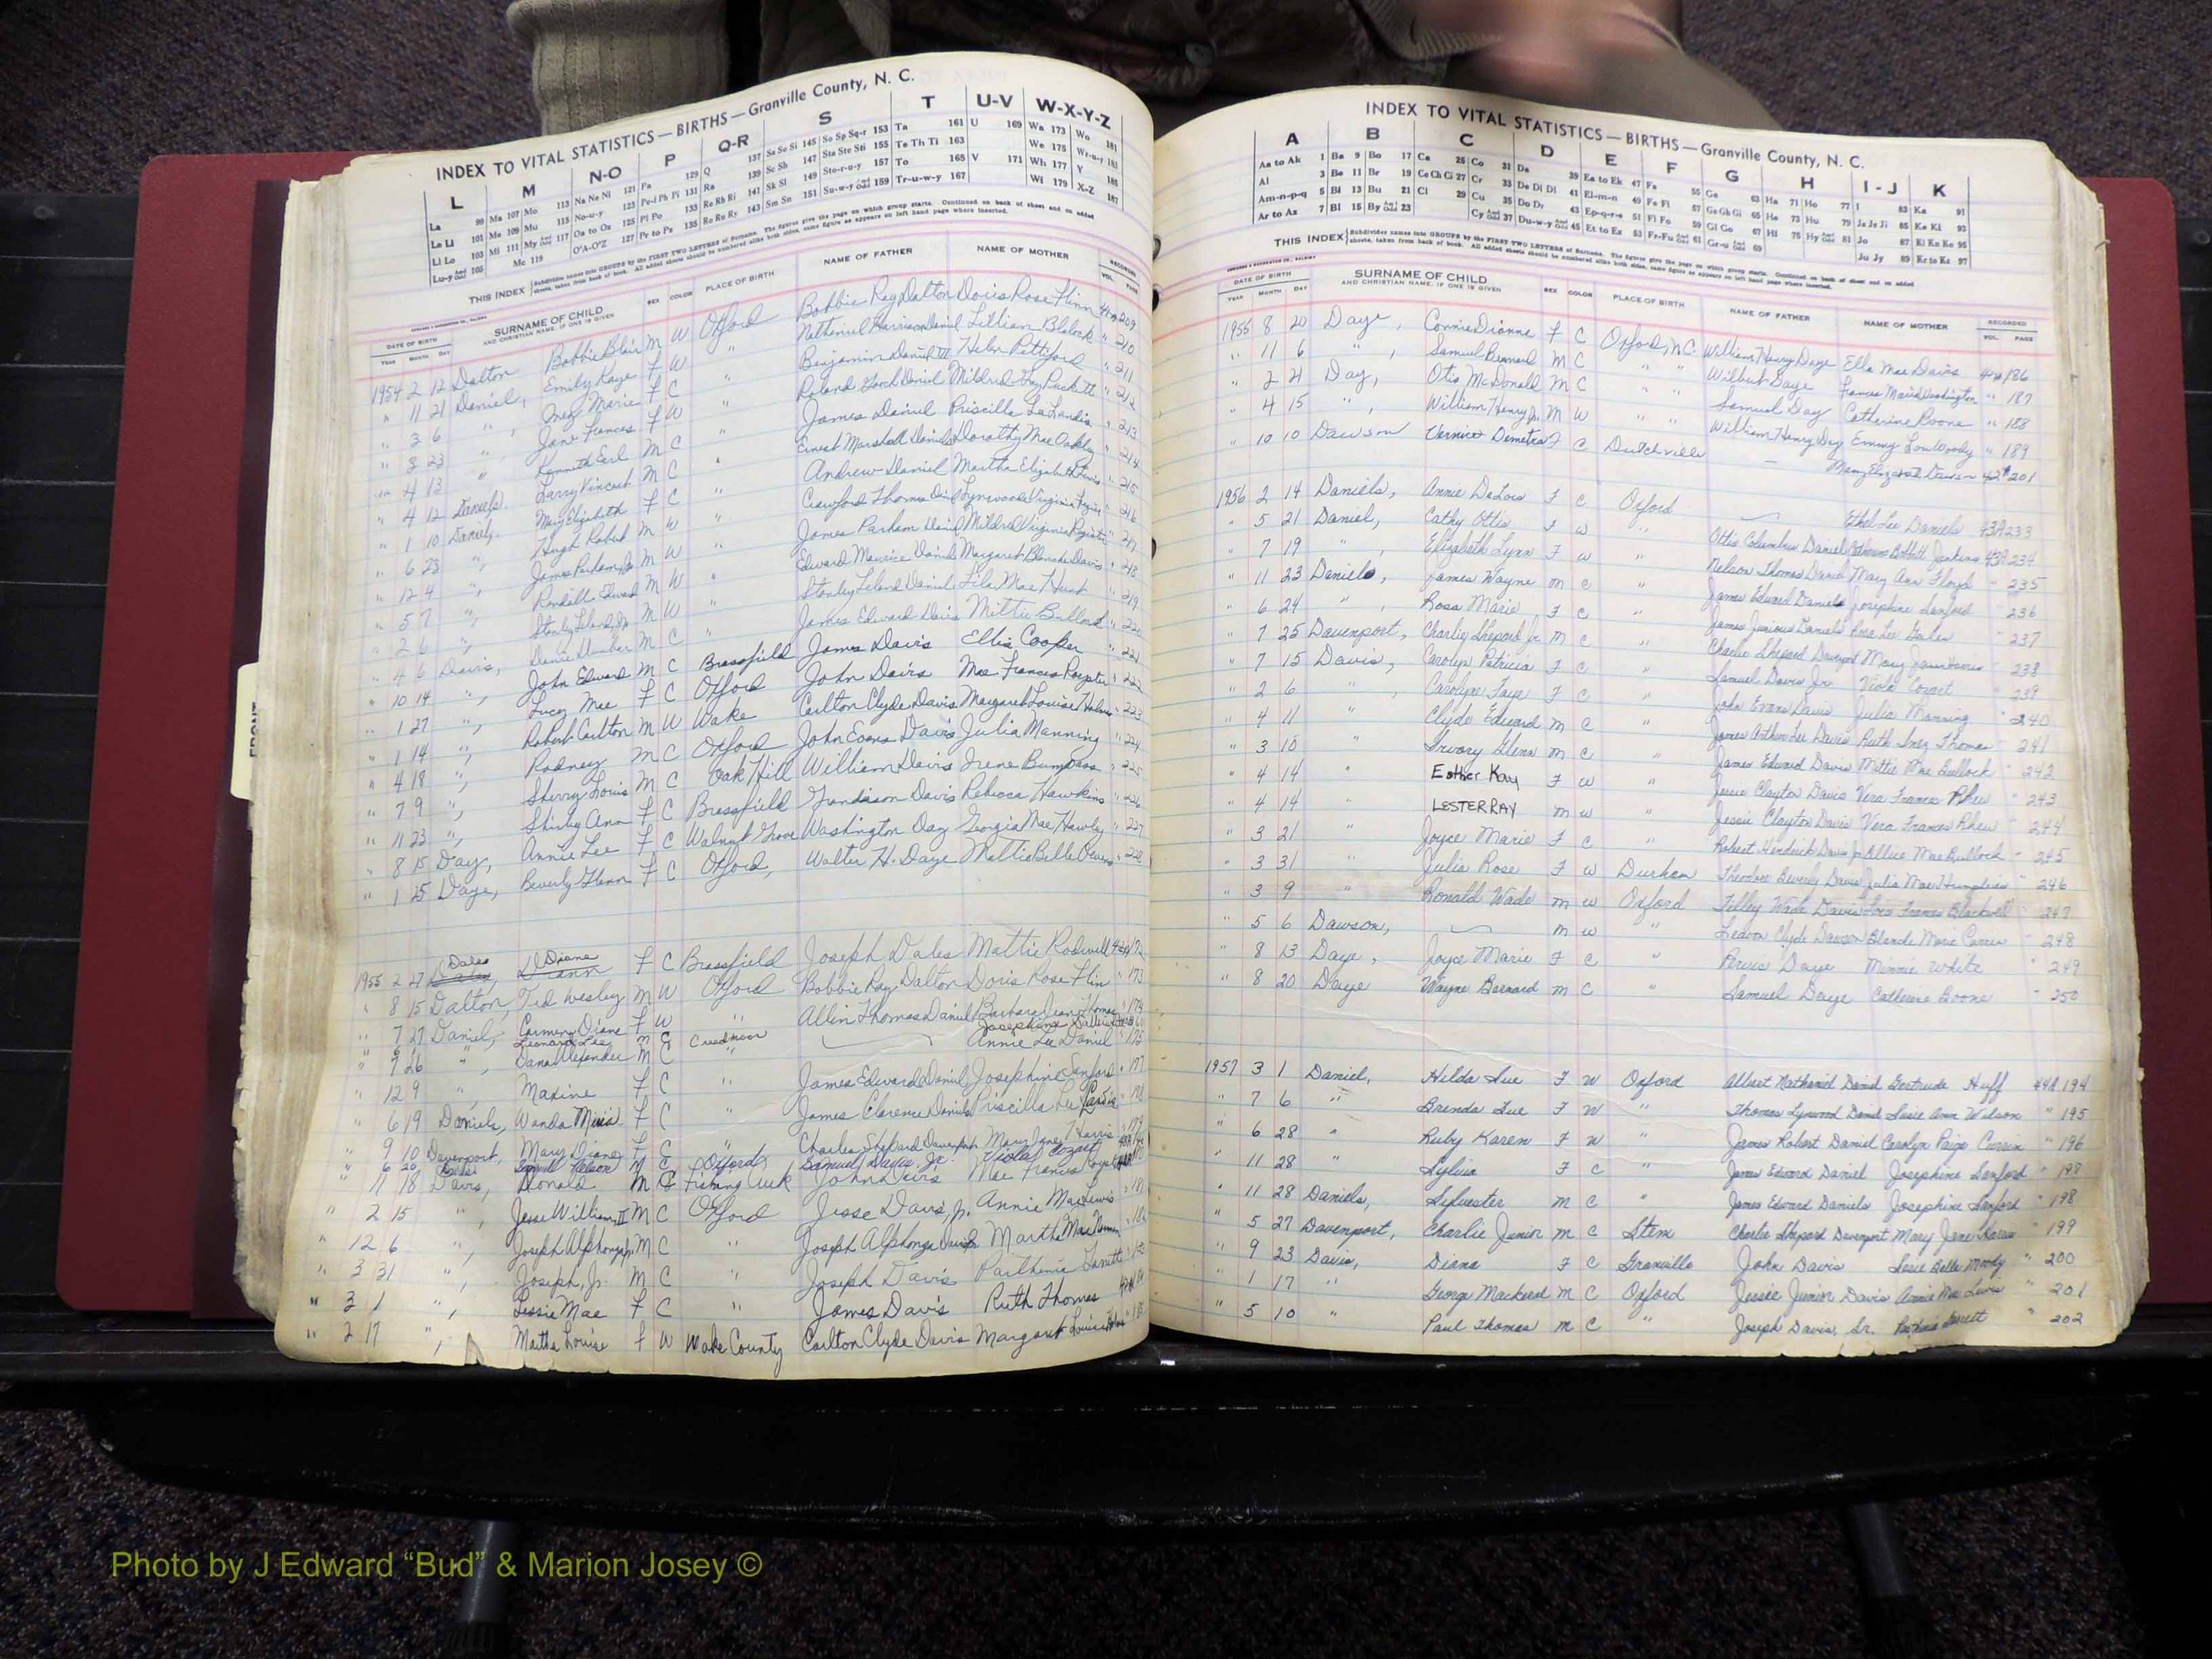 INDEX TO VITAL STATISTICS — BIRTHS — Granville County, N. C.
L M N-O P Q-R S T U-V W-X-Y-Z
La 99 Ma 107 Mo 113 Na Ne Ni 121 Pa 129 Q 137 Sa Se Si 145 So Sp Sq-r 153 Ta 161 U 169 Wa 173 Wo 181
Le Ll 101 Me 109 Mu 115 No-u-y 123 Pe-i Ph Pi 131 Ra 139 Sc Sh 147 Sta Ste Sti 155 Te Th Ti 163 We 175 Wr-u-y 183
Li Lo 103 Mi 111 My And Odd 117 Oa to Oz 125 Pl Po 133 Re Rh Ri 141 Sk Sl 149 Sto-r-u-y 157 To 165 V 171 Wh 177 Y 185
Lu-y And Odd 105 Mc 119 O'A-O'Z 127 Pr to Px 135 Ro Ru Ry 143 Sm Sn 151 Su-w-y And Odd 159 Tr-u-w-y 167 Wi 179 X-Z 187
THIS INDEX Subdivides names into GROUPS by the FIRST TWO LETTERS of Surname. The figures give the page on which group starts. Continued on back of sheet and on added sheets, taken from back of book. All added sheets should be numbered alike both sides, same figure as appears on left hand page where inserted.
DATE OF BIRTH SURNAME OF CHILD SEX COLOR PLACE OF BIRTH NAME OF FATHER NAME OF MOTHER RECORDED
YEAR MONTH DAY AND CHRISTIAN NAME, IF ONE IS GIVEN VOL. PAGE
1954 2 12 Dalton Bobbie Blair M W Oxford Bobbie Ray Dalton Doris Rose Flinn 209
" 11 21 Daniel, Emily Kaye F W " Nathaniel Harrison Daniel Lillian Blalock " 210
" 3 6 " , Inez Marie F C " Benjamin Daniel III Helen Pettiford " 211
" 8 23 " Jane Frances F W " Roland Daniel Mildred Puckett " 212
" 4 13 " Kenneth Earl M C James Daniel Priscilla La Landis " 213
" 4 12 Daniels. Larry Vincent M C " Ernest Marshall Daniels Dorothy Mae Oakley " 214
" 1 10 Daniel, Mary Elizabeth F C " Andrew Daniel Martha Elizabeth Lewis " 215
" 6 23 ", Hugh Robert M W " Crawford Thomas Daniel Lynwood Virginia " 216
" 12 4 ", James Parham Jr M W " James Parham Daniel Mildred Virginia " 217
" 5 7 ", Randall Edward M W " Edward Maurice Daniel Margaret Blanche Davis " 218
" 2 6 ", Stanly Leland Jr M W " Stanley Leland Daniel Lila Mae Hunt " 219
" 4 6 Davis, M C " James Edward Davis Mittie Bullock " 220
" 10 14 ", John Edward M C Brassfield James Davis Ellis Cooper " 221
" 1 27 ", Lucy Mae F C Oxford John Davis Mae Frances Royster " 222
" 1 14 ", Robert Carlton M W Wake Carlton Clyde Davis Margaret Louise " 223
" 4 18 ", Rodney M C Oxford John Evans Davis Julia Manning " 224
" 7 9 ", Sherry Louis M C Oak Hill William Davis Irene Bumpass " 225
" 11 23 ", Shirley Ann F C Brassfield Grandison Davis Rebecca Hawkins " 226
" 8 15 Day, Annie Lee F C Walnut Grove Washington Day Georgia Mae Hawley " 227
" 1 25 Daye, Beverly Glenn F C Oxford, Walter H. Daye Mattie Belle " 228
1955 2 27 Dales Diane F C Brassfield Joseph Dales Mattie Rodwell 172
" 8 15 Dalton, Ted Wesley M W Oxford Bobbie Ray Dalton Doris Rose Flin " 173
" 7 27 Daniel, Carmen Diane F W " Allin Thomas Daniel Barbara Dean Thomas " 174
Leonard Lee Creedmoor Josephine
" 7 26 ", Dana Alexander M C " Annie Lee Daniel " 175
" 12 9 ", Maxine F C " James Edward Daniel Josephine Sanford " 177
" 6 19 Daniels, Wanda F C " James Clarence Daniels Priscilla
" 9 10 Davenport, Mary Diane F C " Charles Shepard Davenport Mary Jane Harris " 179
" 6 20 Nelson M C Oxford Samuel Davis Jr. Viola Cozart
" 11 18 Davis, Donald M C Fishing Creek John Davis Mae Frances
" 2 15 ", Jesse William II M C Oxford Jesse Davis, Jr. Annie Mae Lewis
" 12 6 ", Joseph Alphonza Jr M C " Joseph Alphonza Davis Martha Mae
" 3 31 ", Joseph, Jr. M C " Joseph Davis Parthenia
" 3 1 ", Lessie Mae F C " James Davis Ruth Thomas
" 2 17 ", Martha Louise F W Wake County Carlton Clyde Davis Margaret Louise
INDEX TO VITAL STATISTICS — BIRTHS — Granville County, N. C.
A B C D E F G H I - J K
Aa to Ak 1 Ba 9 Bo 17 Ca 25 Co 31 Da 39 Ea to Ek 47 Fa 55 Ga 63 Ha 71 Ho 77 I 83 Ka 91
Al 3 Be 11 Br 19 Ce Ch Ci 27 Cr 33 De Di Dl 41 El-m-n 49 Fe Fi 57 Ge Gh Gi 65 He 73 Hu 79 Ja Je Ji 85 Ke Ki 93
Am-n-p-q 5 Bi 13 Bu 21 Cl 29 Cu 35 Do Dr 43 Ep-q-r-s 51 Fl Fo 59 Gl Go 67 Hi 75 Hy And Odd 81 Jo 87 Kl Kn Ko 95
Ar to Az 7 Bl 15 By And Odd 23 Cy And Odd 37 Du-w-y And Odd 45 Et to Ex 53 Fr-Fu And Odd 61 Gr-u And Odd 69 Ju Jy 89 Kr to Kz 97
THIS INDEX Subdivides names into GROUPS by the FIRST TWO LETTERS of Surname. The figures give the page on which group starts. Continued on back of sheet and on added sheets, taken from back of book. All added sheets should be numbered alike both sides, same figure as appears on left hand page where inserted.
DATE OF BIRTH SURNAME OF CHILD SEX COLOR PLACE OF BIRTH NAME OF FATHER NAME OF MOTHER RECORDED
YEAR MONTH DAY AND CHRISTIAN NAME, IF ONE IS GIVEN VOL. PAGE
1955 8 20 Daye, Connie Dianne F C Oxford, N.C. William Henry Daye Ella Mae Davis 186
" 11 6 " , Samuel Bernard M C " " Wilbert Daye Frances Maria Washington " 187
" 2 21 Day, Otis McDonald M C " " Samuel Day Catherine Boone " 188
" 4 15 " , William Henry Jr. M W " " William Henry Day Emmy Lou Woody " 189
" 10 10 Dawson Vernice Demetra F C Dutchville — Mary Elizabeth Dawson 201
1956 2 14 Daniels, Annie DeLois F C Oxford — Ethel Lee Daniels 43A 233
" 5 21 Daniel, Cathy Ottis F W " Ottis Columbus Daniel Jenkins 43A 234
" 7 19 " , Elizabeth Lynn F W " Nelson Thomas Daniel Mary Ann Floyd " 235
" 11 23 Daniels, James Wayne M C " James Edward Daniels Josephine Sanford " 236
" 6 24 " , Rosa Marie F C " James Junious Daniels Rosa Lee " 237
" 7 25 Davenport, Charlie Shepard Jr M C " Charlie Shepard Davenport Mary Jane Harris " 238
" 7 15 Davis, Carolyn Patricia F C " Samuel Davis Jr. Viola Cozart " 239
" 2 6 " , Carolyn Faye F C " John Evans Davis Julia Manning " 240
" 4 11 " Clyde Edward M C " James Arthur Lee Davis Ruth Inez Thomas " 241
" 3 10 " Irvory Glenn M C " James Edward Davis Mittie Mae Bullock " 242
" 4 14 " Esther Kay F W " Jessie Clayton Davis Vera Frances Rhew " 243
" 4 14 " LESTER RAY M W " Jessie Clayton Davis Vera Frances Rhew " 244
" 3 21 " Joyce Marie F C " Robert Hendrick Davis Jr Allice Mae Bullock " 245
" 3 31 " Julia Rose F W Durham Theodore Beverly Davis Julia Mae Humphries " 246
" 3 9 " Ronald Wade M W Oxford Tilley Wade Davis Lois Frances Blackwell " 247
" 5 6 Dawson, — M W " Leavon Clyde Dawson Blanche Marie Currin " 248
" 8 13 Daye, Joyce Marie F C " Purvis Daye Minnie White " 249
" 8 20 Daye Wayne Bernard M C " Samuel Daye Catherine Boone " 250
1957 3 1 Daniel, Hilda Sue F W Oxford Albert Nathaniel Daniel Gertrude Huff 44A 194
" 7 6 " Brenda Sue F W " Thomas Lynwood Daniel Susie Ann Wilson " 195
" 6 28 " Ruby Karen F W " James Robert Daniel Carolyn Paige Currin " 196
" 11 28 " Sylvia F C " James Edward Daniel Josephine Sanford " 197
" 11 28 Daniels, Sylvester M C " James Edward Daniels Josephine Sanford " 198
" 5 27 Davenport, Charlie Junior M C Stem Charlie Shepard Davenport Mary Jane Harris " 199
" 9 23 Davis, Diana F C Granville John Davis Susie Belle Moody " 200
" 1 17 " George Mackend M C Oxford Jessie Junior Davis Annie Mae Lewis " 201
" 5 10 " Paul Thomas M C " Joseph Davis, Sr. " 202
FRONT
Photo by J Edward “Bud” & Marion Josey ©